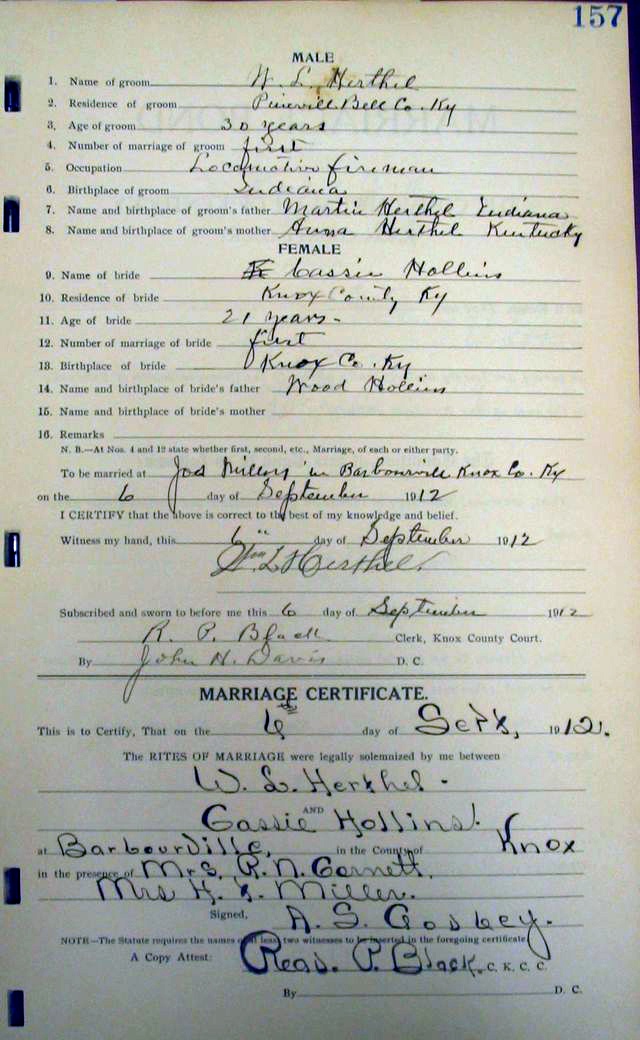 157
MALE
1. Name of groom W. L. Herthel
2. Residence of groom Pinevill Bell Co. Ky
3. Age of groom 30 years
4. Number of marriage of groom first
5. Occupation Locomotive fireman
6. Birthplace of groom Indiana
7. Name and birthplace of groom's father Martin Herthel Indiana
8. Name and birthplace of groom's mother Anna Herthel Kentucky
FEMALE
9. Name of bride Cassie Hollins
10. Residence of bride Knox County Ky
11. Age of bride 21 years -
12. Number of marriage of bride first
13. Birthplace of bride Knox Co. Ky
14. Name and birthplace of bride's father Wood Hollins
15. Name and birthplace of bride's mother
16. Remarks
N. B.—At Nos. 4 and 12 state whether first, second, etc., Marriage, of each or either party.
To be married at Jos Millers in Barbourvill Knox Co. Ky
on the 6 day of September 1912
I CERTIFY that the above is correct to the best of my knowledge and belief.
Witness my hand, this 6" day of September 1912
Wm L Herthel.
Subscribed and sworn to before me this 6 day of September 1912
R. P. Black Clerk, Knox County Court.
By John H. Davis D. C.
MARRIAGE CERTIFICATE.
This is to Certify, That on the 6th day of Sept, 1912.
The RITES OF MARRIAGE were legally solemnized by me between
W. L. Herthel.
AND
Cassie Hollins.
at Barbourville, in the County of Knox
in the presence of Mrs. R. N. Garnett,
Mrs H. Miller.
Signed, A. S. Gosbey.
NOTE—The Statute requires the names of at least two witnesses to be inserted in the foregoing certificate
A Copy Attest: P. Black. C. K. C. C.
By D. C.